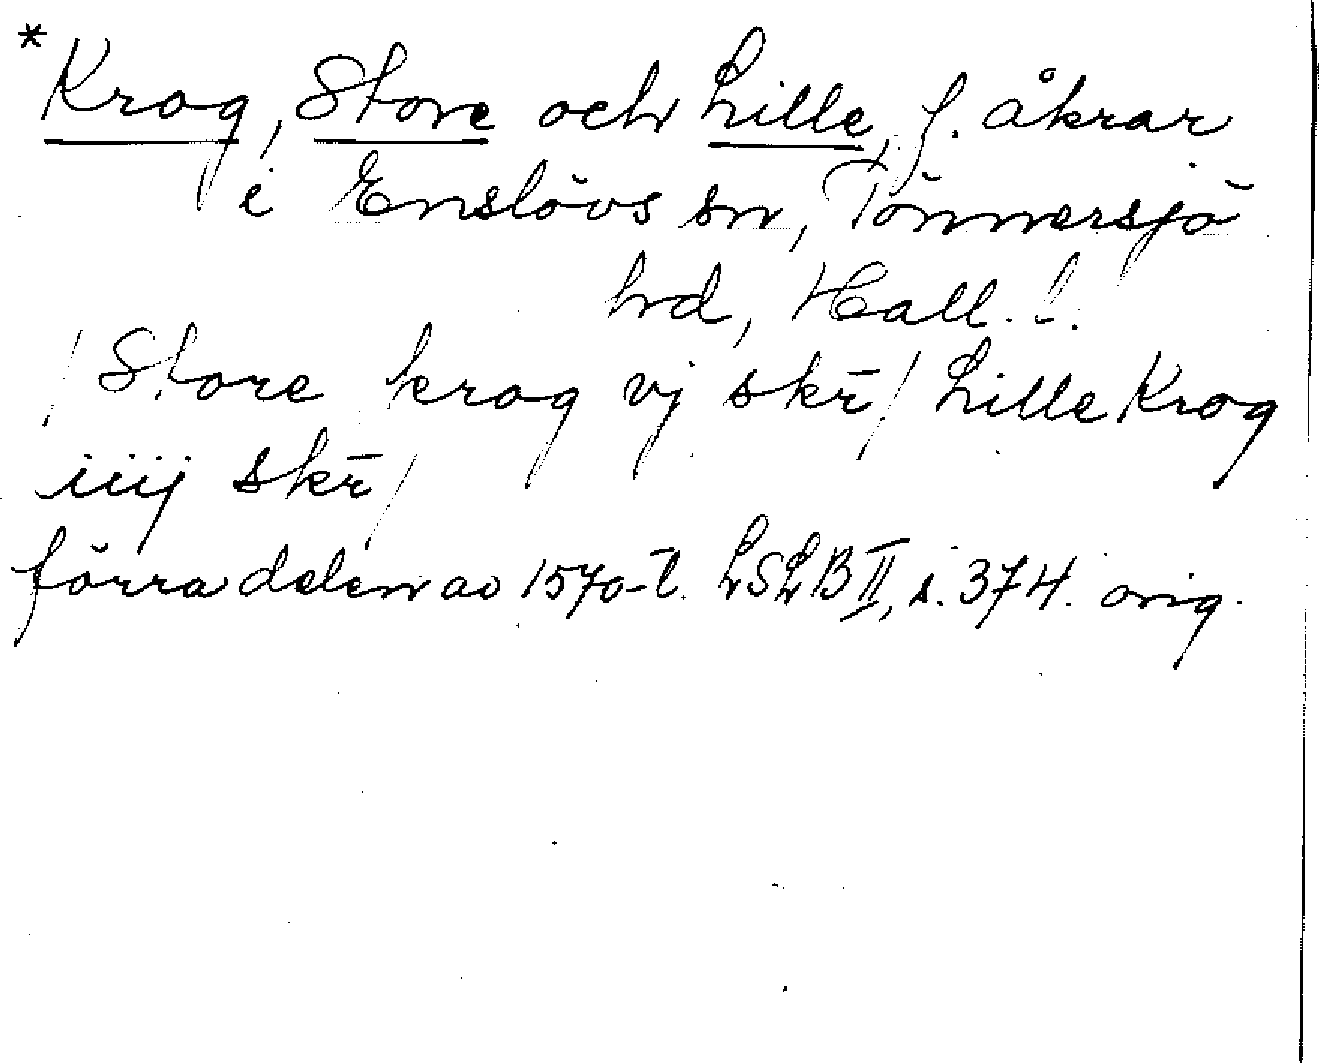 *Krog, Store och Lille, f. åkrar
i Enslövs sn, Tönnersjö
hd, Hall. l.
/ Store krog vj skr̄ / Lille Krog
iiij skr̄ /
förra delen av 1570-t. LSLB II, s. 374. orig.